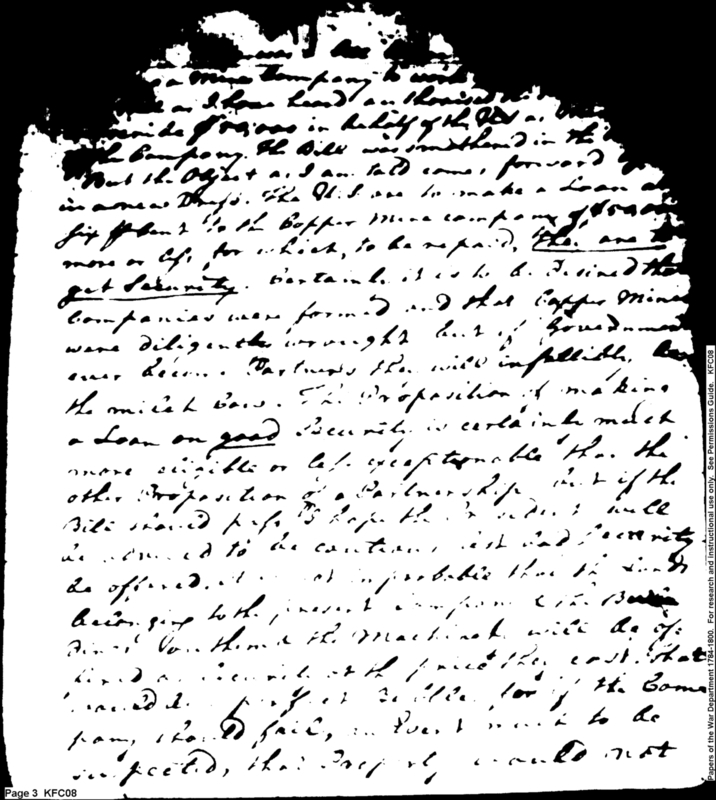 a Mine Company to work
as I have heard authorised
$50,000 in behalf of the U.S as
the Company. The Bill was smothered in the
But the Object as I am told comes forward
in a new Dress. The U.S. are to make a Loan
six pr Cent to the Copper Mine company of $50,000
more or less, for which, to be repaid, they are to
get Security. Certainly it is to be desired that
Companies were formed and that Copper Mines
were diligently wrought but if Government
ever become Partners they will infallibly be
the milch Cow. The Proposition of making
a Loan on good Security is certainly much
more eligible or less exceptionable than the
other Proposition of a Partnership but if the
Bill should pass I hope the President will
be advised to be cautious lest bad Security
be offered. it is not improbable that the Lands
belonging to the present company & the Buil
dings on them & the Machinery will be of:
fered as Security at the price they cost. that
would be perfect for if the Com
pany should fail, an Event much to be
suspected, that Property would not
Page 3 KFC08
Papers of the War Department 1784-1800. For research and instructional use only. See Permissions Guide. KFC08